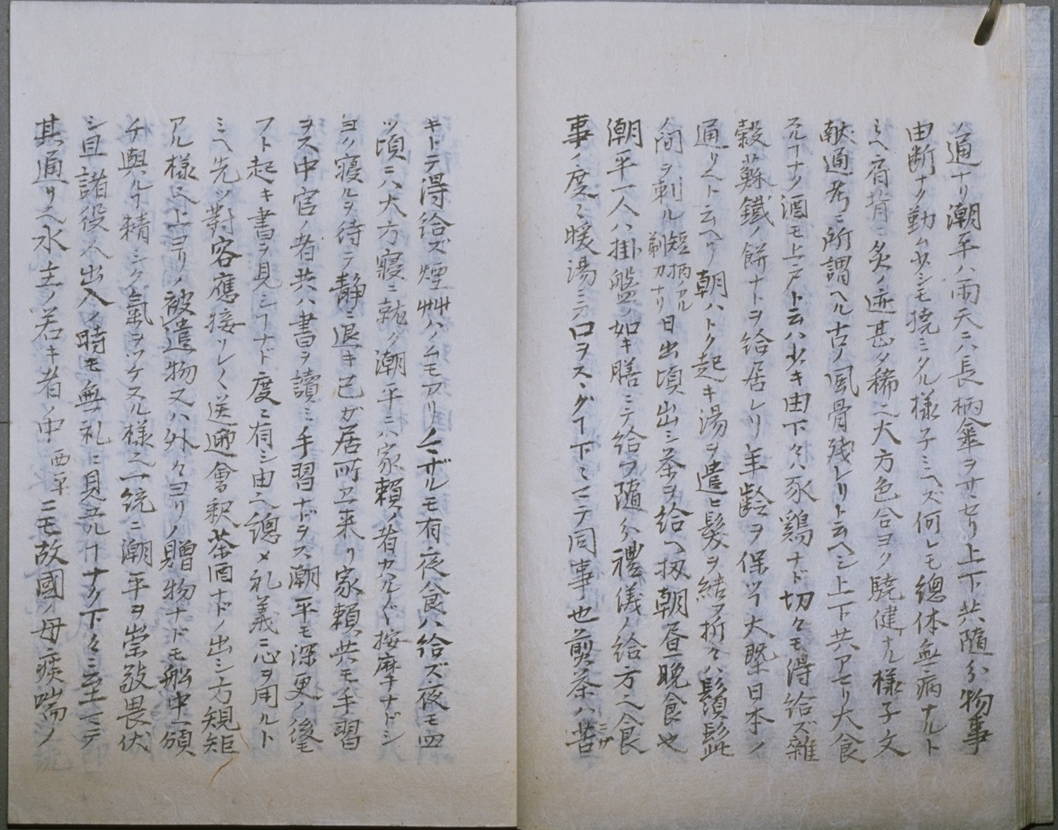 ノ通ナリ潮平ハ雨天ニハ長柄傘ヲサセリ上下共随分物事
由断ナク動ム少シモ撓ミタル様子ミヘズ何レモ總体無病ナルト
ミヘ肩背ニ灸ノ迹甚タ稀ニ大方色合ヨク驍健ナル様子文
献通考ニ所謂ヘル古ノ風骨残レリト云ヘシ上下共アセリ大食
スルナク酒モ上戸ト云ハ少キ由下々ハ豕鶏ナド切々モ得給ズ雜
穀蘓鐵ノ餅ナトヲ給居レリ年齡ヲ保ツ大槩日本ノ
通リト云ヘリ朝ハトク起キ湯ヲ遣ヒ髪ヲ結ヲ折々ハ鬚髭
ノ間ヲ剃ル短柄ノアル剃刀ナリ日出頃出シ茶ヲ給ヘ扨朝昼晩食也
潮平一人ハ掛盤ノ如キ膳ニテ給ヲ随分禮儀ノ給方ヘ食
事ノ度々ニ暖湯ニテ口ヲスヽグ下々ニテ同事也煎茶ハ苦ニガ
キトテ得給ズ煙艸ハノムモアリノマザルモ有夜食ハ給ズ夜モ四
ツ頃ニハ大方寢ニ就ク潮平ニハ家頼ノ者カハル〲按摩ナドシ
ヨク寢ルヲ待テ静ニ退キ己ガ居所エ来リ家頼共モ手習
ヲス中官ノ者共ハ書ヲ讀ミ手習ナドヲス潮平モ深更ノ後
フト起キ書ヲ見シナド度々有シ由ヘ總メ礼義ニ心ヲ用ルト
ミヘ先ツ對客應接ソレ〱送迎會釈茶酒ナドノ出シ方規矩
アル様ニ上ヨリノ被遣物又ハ外々ヨリノ贈物ナドモ船中一頒
チ與ルニ精シク氣ヲツケヌル様ニ一統ニ潮平ヲ崇敬畏伏
シ且諸役人出入ノ時モ無礼ニ見受ケナク下々ニ至ニテ
其通リ水主ノ若キ者ノ中西平ニモ故國ノ母痰喘ノ